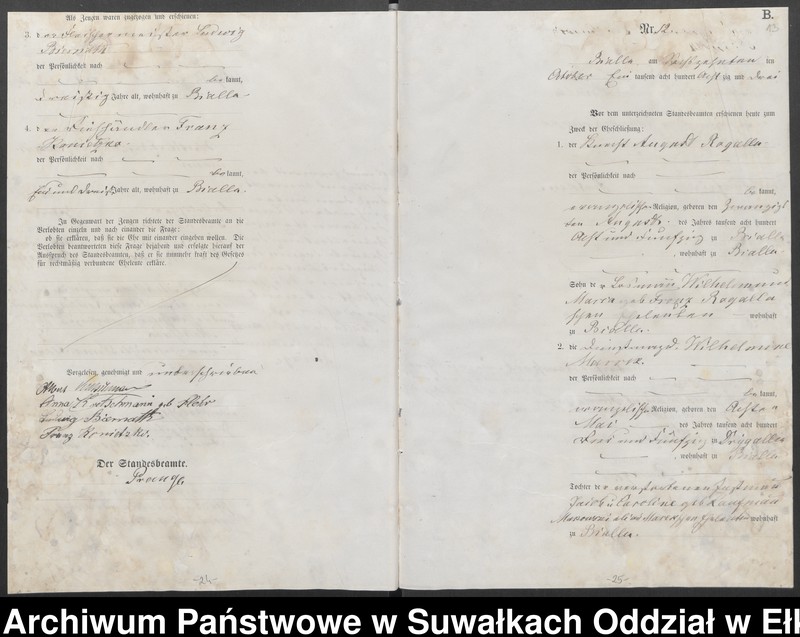 Als Zeugen waren zugezogen und erschienen:
3. der Fleischermeister Ludwig
Biernath
der Persönlichkeit nach
be kannt,
dreißig Jahre alt, wohnhaft zu Bialla
4. der Viehhändler Franz
Konietzko
der Persönlichkeit nach
be kannt,
Jahre alt, wohnhaft zu Bialla.
In Gegenwart der Zeugen richtete der Standesbeamte an die
Verlobten einzeln und nach einander die Frage:
ob sie erklären, daß sie die Ehe mit einander eingehen wollen. Die
Verlobten beantworteten diese Frage bejahend und erfolgte hierauf der
Ausspruch des Standesbeamten, daß er sie nunmehr kraft des Gesetzes
für rechtmäßig verbundene Eheleute erkläre.
Vorgelesen, genehmigt und unterschrieben
Anna Kutschmann geb
Ludwig Biernath
Franz Konietzko.
Der Standesbeamte.
-24-
B.
13
Nr. 12
Bialla am sechszehnten ten
October Ein tausend acht hundert Acht zig und drei
Vor dem unterzeichneten Standesbeamten erschienen heute zum
Zweck der Eheschließung:
1. der Knecht August Rogalla
der Persönlichkeit nach
be kannt,
evangelischer Religion, geboren den zwanzig
ten August des Jahres tausend acht hundert
Acht und fünfzig zu Bialla
, wohnhaft zu Bialla
Sohn der Losmann Wilhelm und
Maria geb Franz Rogalla
schen Eheleuten wohnhaft
zu Bialla.
2. die Dienstmagd Wilhelmine
der Persönlichkeit nach
be kannt,
evangelischer Religion, geboren den Achten
Mai des Jahres tausend acht hundert
Drei und fünfzig zu Drygallen
, wohnhaft zu Bialla
Tochter der verstorbenen
Jacob u Caroline geb
Eheleuten wohnhaft
zu Bialla.
-25-
Archiwum Państwowe w Suwałkach Oddział w Eł